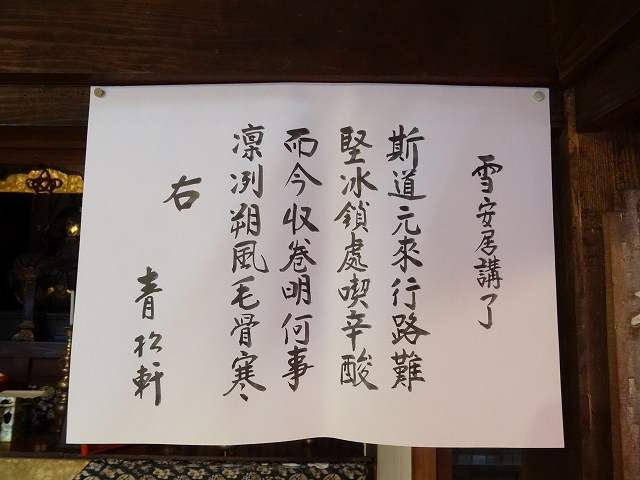 雪安居講了
斯道元來行路難
堅冰鎖處喫辛酸
而今収巻明何事
凛冽朔風毛骨寒
右
青松軒